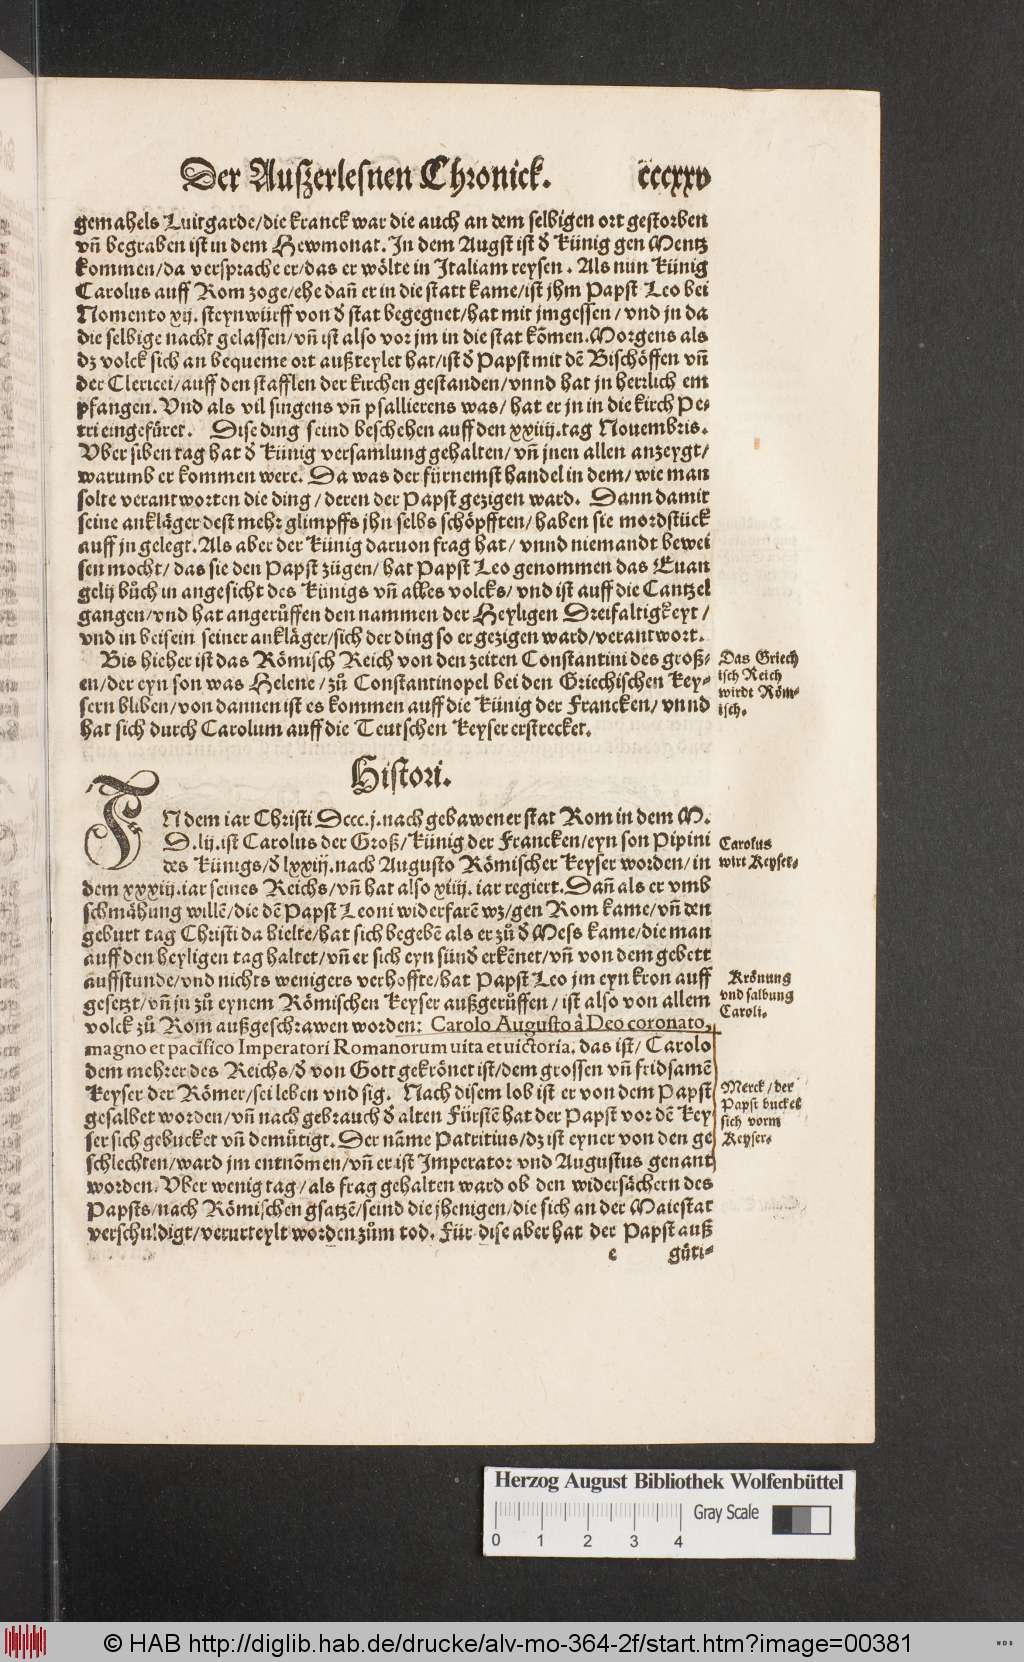 Der Außerlesnen Chronick. cccxxv
gemahels Luitgarde/die kranck war die auch an dem selbigen ort gestorben
vñ begraben ist in dem Hewmonat. In dem Augst ist ð Künig gen Mentz
kommen/da versprache er/das er wölte in Italiam reysen. Als nun Künig
Carolus auff Rom zoge/ehe dañ er in die statt kame/ist jhm Papst Leo bei
Nomento xij. steynwürff von ð stat begegnet/hat mit jm gessen/vnd jn da
die selbige nacht gelassen/vñ ist also vor jm in die stat kõmen. Morgens als
dz volck sich an bequeme ort außteylet hat/ist ð Papst mit dē Bischöffen vñ
der Clericei/auff den stafflen der kirchen gestanden/vnnd hat jn herlich em
pfangen. Vnd als vil singens vñ psallierens was/hat er jn in die kirch Pe-
tri eingefüret. Dise ding seind beschehen auff den xxiiij. tag Nouembris.
Vber siben tag hat ð Künig versamlung gehalten/vñ jnen allen anzeygt/
warumb er kommen were. Da was der fürnemst handel in dem/wie man
solte verantworten die ding/deren der Papst gezigen ward. Dann damit
seine ankläger dest mehr glimpffs jhn selbs schöpfften/haben sie mordstück
auff jn gelegt. Als aber der Künig daruon frag hat/vnnd niemandt bewei
sen mocht/das sie den Papst zügen/hat Papst Leo genommen das Euan
gelij bůch in angesicht des Künigs vñ alles volcks/vnd ist auff die Cantzel
gangen/vnd hat angerůffen den nammen der Heyligen Dreifaltigkeyt/
vnd in beisein seiner ankläger/sich der ding so er gezigen ward/verantwort.
Bis hieher ist das Römisch Reich von den zeiten Constantini des groß-
en/der eyn son was Helene/zů Constantinopel bei den Griechischen Key-
sern bliben/von dannen ist es kommen auff die Künig der Francken/vnnd
hat sich durch Carolum auff die Teutschen Keyser erstrecket.
Das Griech
isch Reich
wirdt Röm-
isch.
Histori.
IN dem iar Christi Dccc.j. nach gebawener stat Rom in dem M.
D.lij. ist Carolus der Groß/Künig der Francken/eyn son Pipini
des Künigs/ð lxxiij. nach Augusto Römischer Keyser worden/in
dem xxxiij. iar seines Reichs/vñ hat also xiiij. iar regiert. Dañ als er vmb
schmähung willē/die dē Papst Leoni widerfarē wz/gen Rom kame/vñ den
geburt tag Christi da hielte/hat sich begebē als er zů ð Mess kame/die man
auff den heyligen tag haltet/vñ er sich eyn sünð erkēnet/vñ von dem gebett
auffstunde/vnd nichts wenigers verhoffte/hat Papst Leo jm eyn kron auff
gesetzt/vñ jn zů eynem Römischen Keyser außgerůffen/ist also von allem
volck zů Rom außgeschrawen worden: Carolo Augusto à Deo coronato,
magno et pacifico Imperatori Romanorum uita et uictoria, das ist/Carolo
dem mehrer des Reichs/ð von Gott gekrönet ist/dem grossen vñ fridsamē
Keyser der Römer/sei leben vnd sig. Nach disem lob ist er von dem Papst
gesalbet worden/vñ nach gebrauch ð alten Fürstē hat der Papst vor dē Key
ser sich gebucket vñ demütigt. Der nãme Patritius/dz ist eyner von den ge
schlechten/ward jm entnõmen/vñ er ist Imperator vnd Augustus genant
worden. Vber wenig tag/als frag gehalten ward ob den widersächern des
Papsts/nach Römischen gsatzē/seind die jhenigen/die sich an der Maiestat
verschuldigt/verurteylt worden zům tod. Für dise aber hat der Papst auß
e güti-
Carolus
wirt Keyser.
Krönung
vnd salbung
Caroli.
Merck/der
Papst bucket
sich vorm
Keyser.
Herzog August Bibliothek Wolfenbüttel
0 1 2 3 4 Gray Scale
© HAB http://diglib.hab.de/drucke/alv-mo-364-2f/start.htm?image=00381